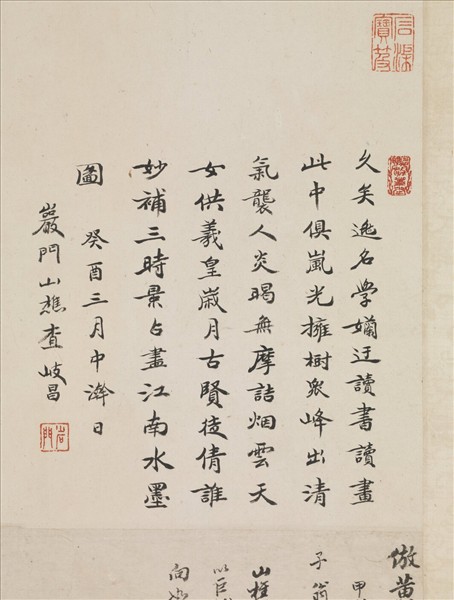 久矣逃名學嬾迂讀書讀畫
此中俱嵐光擁樹眾峰出清
氣襲人炎暍無摩詰烟雲天
女供羲皇歲月古賢徒倩誰
妙補三時景占盡江南水墨
圖 癸酉三月中澣日
巖門山樵查岐昌
岩門
倣黃
甲
子翁
山樵
以巨
向